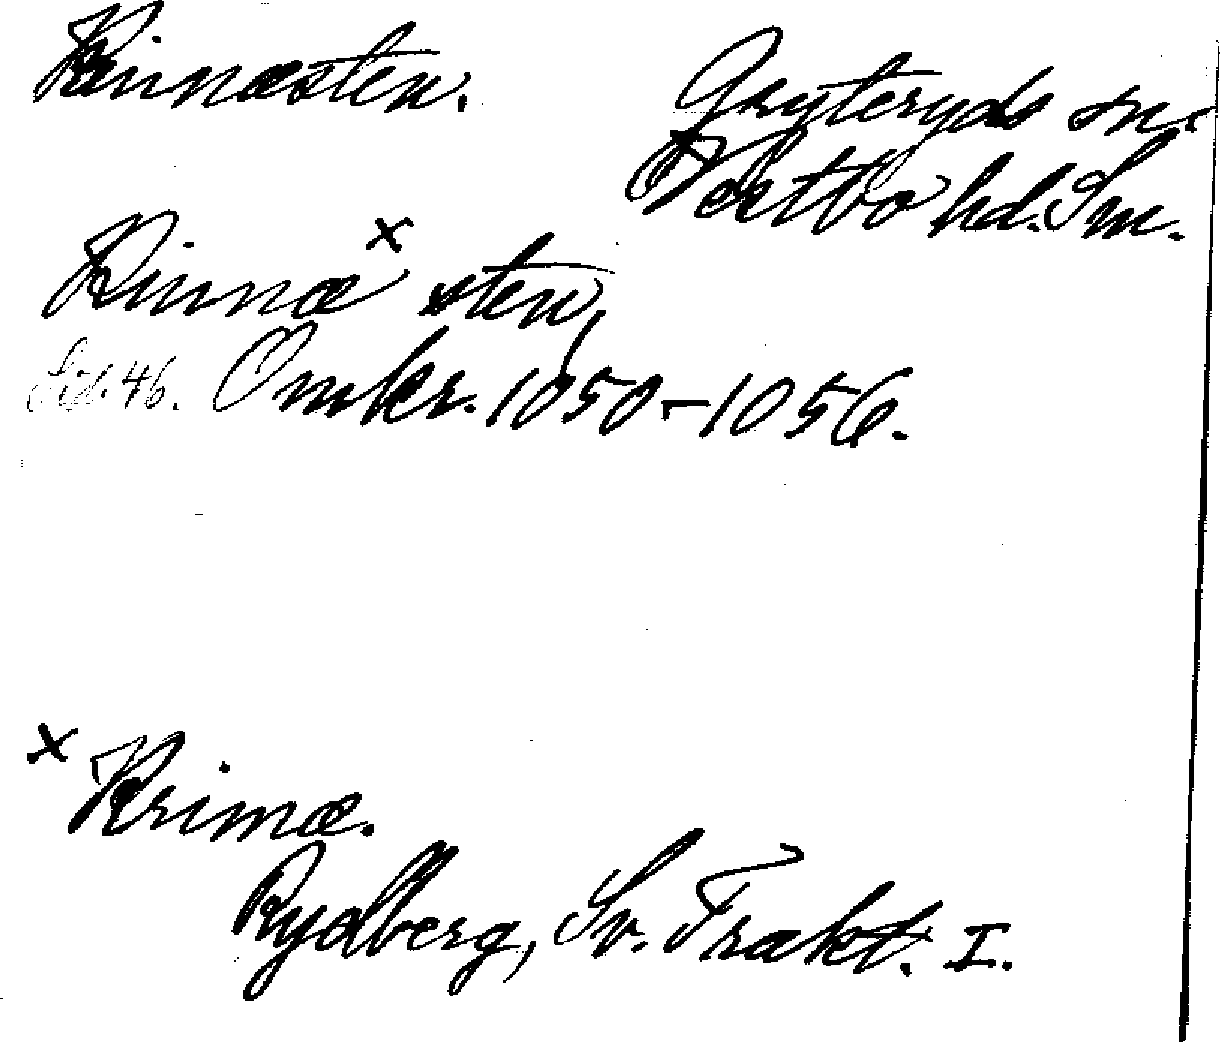 Kinnæsten.
Gryteryds sn.
Västbo hd. Sm.
Kinnæ x sten,
Sid. 46. Omkr. 1050-1056.
x Krimæ.
Rydberg, Sv. Trakt. I.